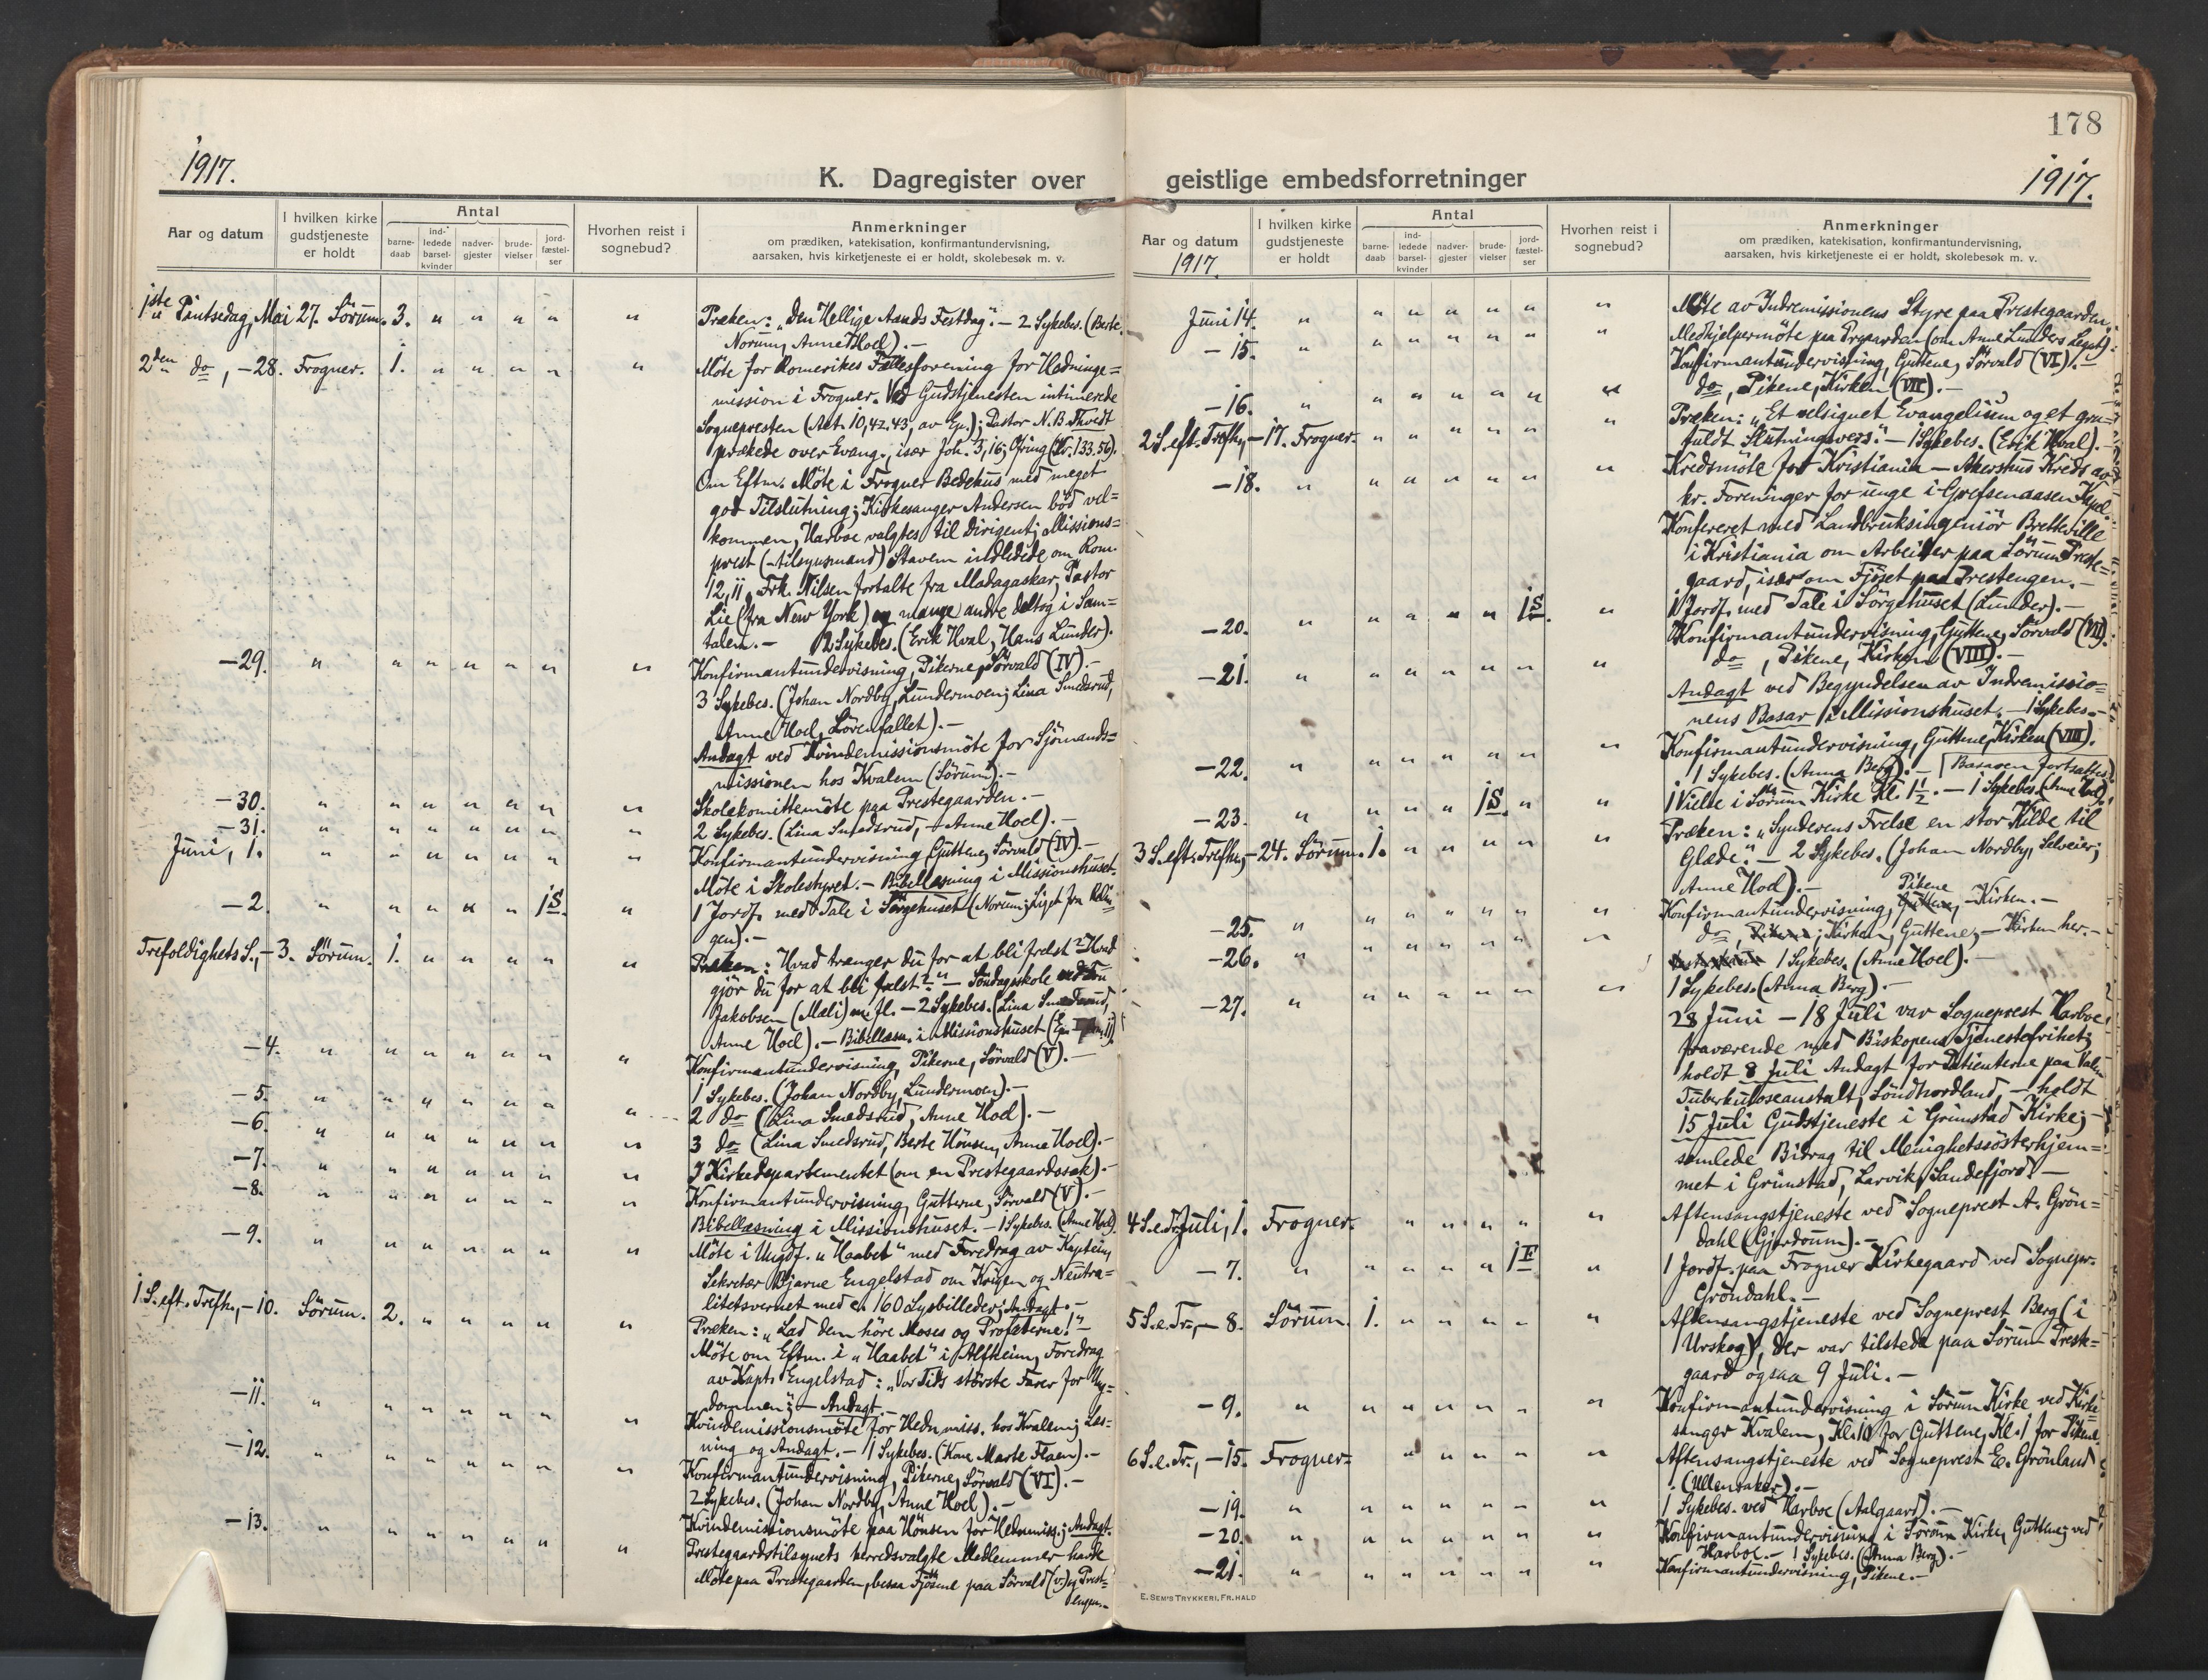 178
1917.
K. Dagregister over geistlige embedsforretninger
1917.
Aar og datum
I hvilken kirke gudstjeneste er holdt
Antal
barne-daab
ind-ledede barsel-kvinder
nadver-gjester
brude-vielser
jord-fæstel-ser
Hvorhen reist i sognebud?
Anmerkninger
om prædiken, katekisation, konfirmantundervisning,
aarsaken, hvis kirketjeneste ei er holdt, skolebesøk m. v.
1ste Pintsedag, Mai 27. Sörum. 3. " " " " " Præken: „Den Hellige Aands Festdag". – 2 Sykebes. (Berte
Norum, Anne Hoel). –
2den do, – 28. Frogner. 1. " " " " " Möte for Romerikes Fællesforening for Hedninge=
mission i Frogner. Ved Gudstjenesten intimerede
Sognepresten (Act. 10,42.43, av Ep.); Pastor N. B. Thvedt
prækede over Evang., især Joh. 3,16; Ofring (Kr. 133.56).
Om Eftm. Möte i Frogner Bedehus med meget
god Tilslutning; Kirkesanger Andersen böd vel=
kommen, Harboe valgtes til Dirigent; Missions=
prest (–tilsynsmand) Stavem indledede om Rom.
12,11. Frk. Nilsen fortalte fra Madagaskar, Pastor
Lie (fra New York) og mange andre deltog i Sam=
talen. – 2 Sykebes. (Erik Hval, Hans Lunder).
– 29. " " " " " " " Konfirmantundervisning, Pikerne, Sörvald (IV). –
3 Sykebes. (Johan Nordby, Lundermoen; Lina Smedsrud,
Anne Hoel, Lörenfallet). –
Andagt ved Kvindemissionsmöte for Sjömands=
missionen hos Kvalem (Sörum). –
– 30. " " " " " " " Skolekomitemöte paa Prestegaarden. –
– 31. " " " " " " " 2 Sykebes. (Lina Smedsrud, – Anne Hoel). –
Juni, 1. " " " " " " " Konfirmantundervisning, Guttene, Sörvald (IV). –
Möte i Skolestyret. – Bibellæsning i Missionshuset.
– 2. " " " " " 1S. " 1 Jordf. med Tale i Sörgehuset (Norum; Liget fra
gen). –
Trefoldighets S., – 3. Sörum. 1. " " " " " Præken: Hvad trænger du for at bli frelst? Hvad
gjör du for at bli frelst?" – Söndagsskole
Jakobsen (Mæli) m. fl. – 2 Sykebes. (Lina Smedsrud,
Anne Hoel). – Bibellæsn. i Missionshuset
– 4. " " " " " " " Konfirmantundervisning, Pikerne, Sörvald (V). –
1 Sykebes. (Johan Nordby, Lundermoen). –
– 5. " " " " " " " 2 do (Lina Smedsrud, Anne Hoel). –
– 6. " " " " " " " 3 do (Lina Smedsrud, Berte Hönsen, Anne Hoel). –
– 7. " " " " " " " I Kirkedepartementet (om en Prestegaardssak). –
– 8. " " " " " " " Konfirmantundervisning, Gutterne, Sörvald (V). –
Bibellæsning i Missionshuset. – 1 Sykebes. (Anne Hoel).
– 9. " " " " " " " Möte i Ungdf. „Haabet" med Foredrag av Kaptein,
Sekretær Bjarne Engelstad om Krigen og Neutra=
litetsvernet med ca. 160 Lysbilleder; Andagt. –
1 S. eft. Trefh., – 10. Sörum. 2. " " " " " Præken: „Lad dem höre Moses og Profeterne!" –
Möte om Eftm. i „Haabet" i Alfheim, Foredrag
av Kapt. Engelstad: „Vor Tids störste Farer for Ung=
dommen"; – Andagt. –
– 11. " " " " " " " Kvindemissionsmöte for Hedn.miss. hos Kvalem; Læs=
ning og Andagt. – 1 Sykebes. (Kone Marte Flaen). –
– 12. " " " " " " " Konfirmantundervisning, Pikerne, Sörvald (VI). –
2 Sykebes. (Johan Nordby, Anne Hoel). –
– 13. " " " " " " " Kvindemissionsmöte paa Hönsen for Hednmiss.; Andagt.
Prestegaardstilsynets herredsvalgte Medlemmer havde
Möte paa Prestegaarden, besaa Fjösene paa Sörvald (v.) og Prest=
engen. –
Aar og datum
1917.
I hvilken kirke gudstjeneste er holdt
Antal
barne-daab
ind-ledede barsel-kvinder
nadver-gjester
brude-vielser
jord-fæstel-ser
Hvorhen reist i sognebud?
Anmerkninger
om prædiken, katekisation, konfirmantundervisning,
aarsaken, hvis kirketjeneste ei er holdt, skolebesøk m. v.
Juni 14. " " " " " " " Möte av Indremissionens Styre paa Prestegaarden.
– 15. " " " " " " " Medhjelpermöte paa Prgaarden (om Anne Lunders Legat).
Konfirmantundervisning, Guttene, Sörvald (VI). –
– 16. " " " " " " " do, Pikene, Kirken (VII). –
2 S. eft. Trefh., – 17. Frogner. " " " " " " Præken: „Et velsignet Evangelium og et gru=
fuldt Slutningsvers." – 1 Sykebes. (Erik Hval). –
– 18. " " " " " " " Kredsmöte for Kristiania – Akershus Kreds av
kr. Foreninger for unge i Grefsenaasen Kapel.
Konfereret med Landbruksingeniör Bretteville
i Kristiania om Arbeider paa Sörum Preste=
gaard, især om Fjöset paa Prestengen. –
– 20. " " " " " 1S. " 1 Jordf. med Tale i Sörgehuset (Lunder). –
Konfirmantundervisning, Guttene, Sörvald (VII).
do, Pikene, Kirken (VIII). –
– 21. " " " " " " " Andagt ved Begyndelsen av Indremissio=
nens Basar i Missionshuset. – 1 Sykebes. –
– 22. " " " " " " " Konfirmantundervisning, Guttene, Kirken (VIII).
1 Sykebes. (Anna Berg). – [Basaren fortsattes.]
– 23. " " " " 1S. " " 1 Vielse i Sörum Kirke Kl. 1½. – 1 Sykebes. (Anne Hoel).
3 S. eft. Trefh., – 24. Sörum. 1. " " " " " Præken: „Synderens Frelse en stor Kilde til
Glæde". – 2 Sykebes. (Johan Nordby, Selveier;
Anne Hoel). –
– 25. " " " " " " " Konfirmantundervisning, Pikene, – Kirken. –
– 26. " " " " " " " do, Guttene, – Kirken her. –
1 Sykebes. (Anne Hoel). –
– 27. " " " " " " " 1 Sykebes. (Anna Berg). –
28 Juni – 18 Juli var Sogneprest Harboe
fraværende med Biskopens Tjenestefrihet;
holdt 8 Juli Andagt for Patienterne paa
Tuberkuloseanstalt, Söndhordland, – holdt
15 Juli Gudstjeneste i Grimstad Kirke; –
samlede Bidrag til Menighetssösterhjem=
met i Grimstad, Larvik, Sandefjord. –
4 S. e. Tr. Juli, 1. Frogner. " " " " " Aftensangstjeneste ved Sogneprest A. Grön=
dahl (Gjerdrum). –
– 7. " " " " " 1F " 1 Jordf. paa Frogner Kirkegaard ved Sognepr.
Gröndahl. –
5 S. e. Tr., – 8. Sörum. 1. " " " " " Aftensangstjeneste ved Sogneprest Berg (i
Urskog), der var tilstede paa Sörum Preste=
gaard ogsaa 9 Juli. –
– 9. " " " " " " " Konfirmantundervisning i Sörum Kirke ved Kirke=
sanger Kvalem, Kl. 10 for Guttene, Kl. 1 for Pikene
6 S. e. Tr., – 15. Frogner. " " " " " Aftensangstjeneste ved Sogneprest E. Grönland
(Ullensaker). –
– 19. " " " " " " " 1 Sykebes. ved Harboe (Aalgaard). –
– 20. " " " " " " " Konfirmantundervisning i Sörum Kirke, Guttene, ved
Harboe. – 1 Sykebes. (Anna Berg). –
– 21. " " " " " " " Konfirmantundervisning, Pikene. –
E. SEM'S TRYKKERI, FR.HALD